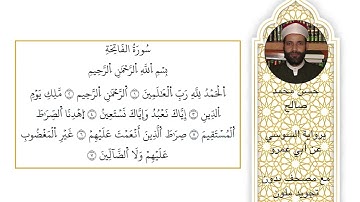 سُورَةُ الْفَاتِحَةِ
بِسْمِ اِ۬للَّهِ اِ۬لرَّحْمَٰنِ اِ۬لرَّحِيمِ
اَ۬لْحَمْدُ لِلَّهِ رَبِّ اِ۬لْعَٰلَمِينَ ۝ اَ۬لرَّحْمَٰنِ اِ۬لرَّحِيم ۝ مَّلِكِ يَوْمِ
اِ۬لدِّينِ ۝ إِيَّاكَ نَعْبُدُ وَإِيَّاكَ نَسْتَعِينُ ۝ اَ۪هْدِنَا اَ۬لصِّرَٰطَ
اَ۬لْمُسْتَقِيمَ ۝ صِرَٰطَ اَ۬لَّذِينَ أَنْعَمْتَ عَلَيْهِمْ ۝ غَيْرِ اِ۬لْمَغْضُوبِ
عَلَيْهِمْ وَلَا اَ۬لضَّآلِّينَ ۝
حسن محمد
صالح
برواية السوسي
عن أبي عمرو
مع مصحف بدون
تجويد ملون